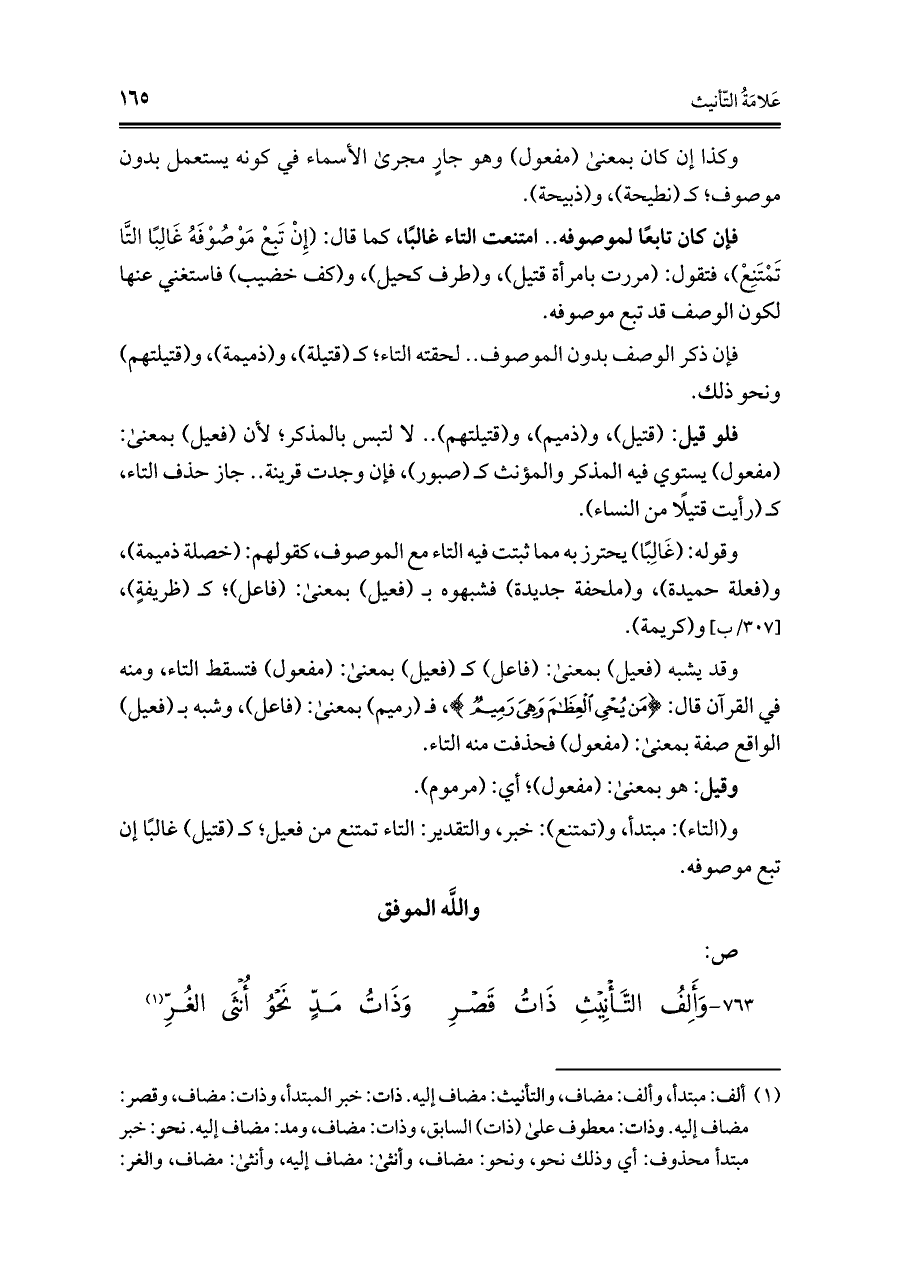 عَلامَةُ التّأنيث ١٦٥
وكذا إن كان بمعنىٰ (مفعول) وهو جارٍ مجرىٰ الأسماء في كونه يستعمل بدون
موصوف؛ كـ (نطيحة)، و(ذبيحة).
فإن كان تابعًا لموصوفه.. امتنعت التاء غالبًا، كما قال: (إِنْ تَبِعْ مَوْصُوْفَهُ غَالِبًا التَّا
تَمْتَنِعْ)، فتقول: (مررت بامرأة قتيل)، و(طرف كحيل)، و(كف خضيب) فاستغني عنها
لكون الوصف قد تبع موصوفه.
فإن ذكر الوصف بدون الموصوف.. لحقته التاء؛ كـ (قتيلة)، و(ذميمة)، و(قتيلتهم)
ونحو ذلك.
فلو قيل: (قتيل)، و(ذميم)، و(قتيلتهم).. لا لتبس بالمذكر؛ لأن (فعيل) بمعنىٰ:
(مفعول) يستوي فيه المذكر والمؤنث كـ (صبور)، فإن وجدت قرينة.. جاز حذف التاء،
كـ (رأيت قتيلًا من النساء).
وقوله: (غَالِبًا) يحترز به مما ثبتت فيه التاء مع الموصوف، كقولهم: (خصلة ذميمة)،
و(فعلة حميدة)، و(ملحفة جديدة) فشبهوه بـ (فعيل) بمعنىٰ: (فاعل)؛ كـ (ظريفةٍ)،
[٣٠٧/ ب] و(كريمة).
وقد يشبه (فعيل) بمعنىٰ: (فاعل) كـ (فعيل) بمعنىٰ: (مفعول) فتسقط التاء، ومنه
في القرآن قال: ﴿مَن يُحْيِ ٱلْعِظَٰمَ وَهِىَ رَمِيمٌ﴾، فـ (رميم) بمعنىٰ: (فاعل)، وشبه بـ (فعيل)
الواقع صفة بمعنىٰ: (مفعول) فحذفت منه التاء.
وقيل: هو بمعنىٰ: (مفعول)؛ أي: (مرموم).
و(التاء): مبتدأ، و(تمتنع): خبر، والتقدير: التاء تمتنع من فعيل؛ كـ (قتيل) غالبًا إن
تبع موصوفه.
واللَّه الموفق
ص:
٧٦٣-وَأَلِفُ التَّأْنِيْثِ ذَاتُ قَصْرِ وَذَاتُ مَدٍّ نَحْوُ أُنْثَى الغُرِّ(١)
(١) ألف: مبتدأ، وألف: مضاف، والتأنيث: مضاف إليه. ذات: خبر المبتدأ، وذات: مضاف، وقصر:
مضاف إليه. وذات: معطوف علىٰ (ذات) السابق، وذات: مضاف، ومد: مضاف إليه. نحو: خبر
مبتدأ محذوف: أي وذلك نحو، ونحو: مضاف، وأنثىٰ: مضاف إليه، وأنثىٰ: مضاف، والغر: